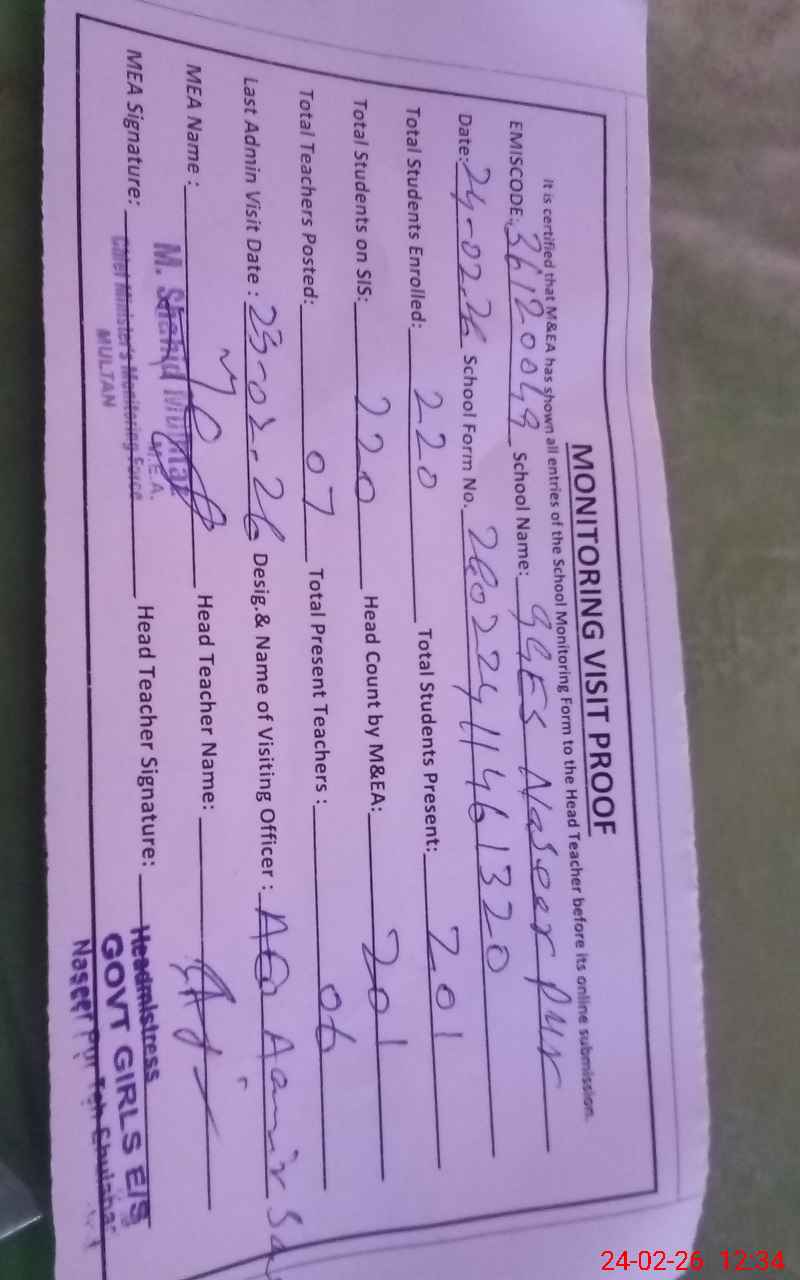 MONITORING VISIT PROOF
It is certified that M&EA has shown all entries of the School Monitoring Form to the Head Teacher before its online submission.
EMISCODE: 36120049 School Name: GGES Naseer Pur
Date: 24-02-26 School Form No. 26022411461320
Total Students Enrolled: 220 Total Students Present: 201
Total Students on SIS: 220 Head Count by M&EA: 201
Total Teachers Posted: 07 Total Present Teachers: 06
Last Admin Visit Date: 23-02-26 Desig.& Name of Visiting Officer: Aamir
MEA Name: Head Teacher Name:
M. Shahid Mumtaz
M.E.A.
MEA Signature: Head Teacher Signature:
Chief Minister's Monitoring Force
MULTAN
Headmistress
GOVT GIRLS E/S
Naseer Pur Teh
24-02-26 12:34